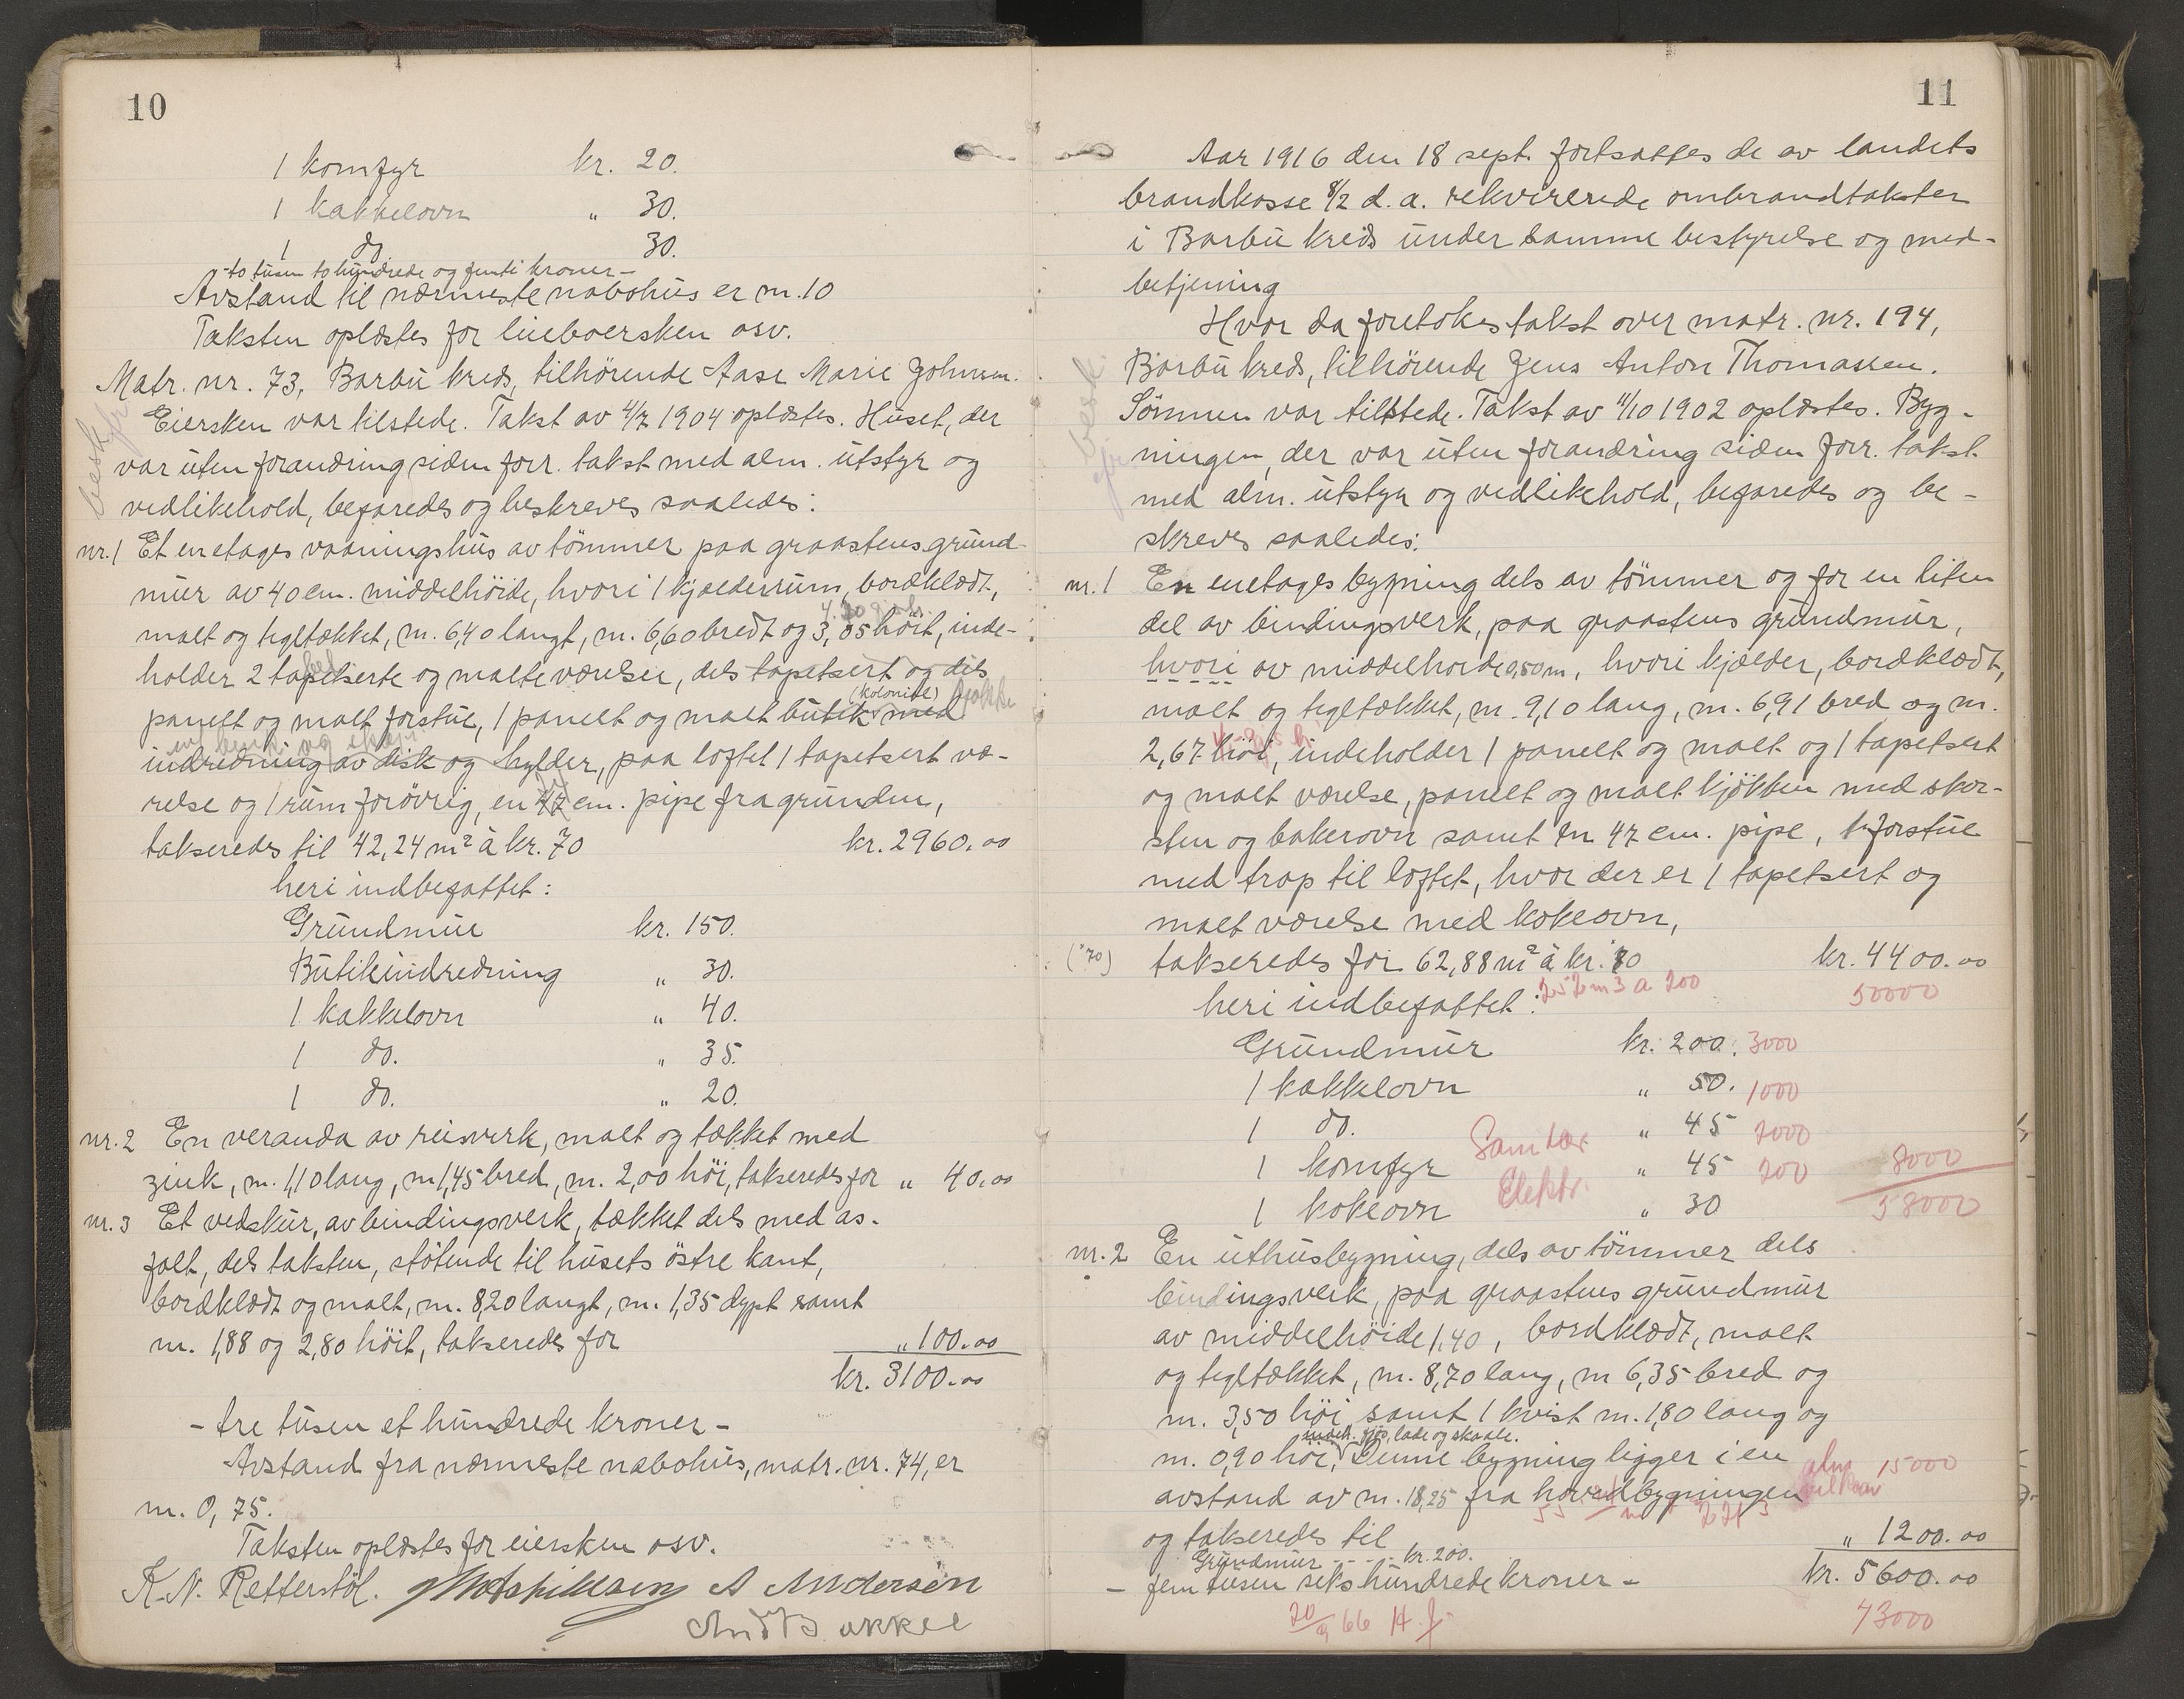 10
1 komfyr kr. 20.
1 kakkelovn " 30.
1 do. 30.
- to tusen to hundrede og femti kroner -
Avstand til nærmeste nabohus er m. 10
Taksten oplæstes for beboersken osv.
Matr. nr. 73, Barbu kreds, tilhörende Aase Marie Johnsen.
Eiersken var tilstede. Takst av 4/7 1904 oplæstes. Huset, der
var uten forandring siden forr. takst med alm. utstyr og
vedlikehold, befaredes og beskreves saaledes:
nr. 1 Et enetages vaaningshus av tömmer paa graastens grund-
mur av 40 cm. middelhöide, hvori 1 kjælderrum, bordklædt,
malt og tegltækket, m. 6,40 langt, m. 6,60 bredt og 3,05 höit, inde-
holder 2 tapetserte og malte værelser, dels tapetsert og dels
panelt og malt forstue, 1 panelt og malt butik (kolonial) med
indredning av disk og hylder, paa loftet 1 tapetsert væ-
relse og 1 rum forövrig, en 47 cm. pipe fra grunden,
takseredes til 42,24 m² à kr. 70 kr. 2960.00
heri indbefattet:
Grundmur kr. 150.
Butikindredning " 30.
1 kakkelovn " 40.
1 do. " 35.
1 do. " 20.
nr. 2 En veranda av reisverk, malt og tækket med
zink, m. 1,10 lang, m 1,45 bred, m. 2,00 höi, takseredes for " 40.00
nr. 3 Et vedskur, av bindingsverk, tækket dels med as-
falt, dels taksten, stötende til husets östre kant,
bordklædt og malt, m. 8,20 langt, m. 1,35 dypt samt
m. 1,88 og 2,80 höit, takseredes for " 100.00
kr. 3100.00
- tre tusen et hundrede kroner -
Avstand fra nærmeste nabohus, matr. nr. 74, er
m. 0,75.
Taksten oplæstes for eiersken osv.
K. N. Retterstöl. A Andersen
11
Aar 1916 den 18 sept. fortsattes de av landets
brandkasse 8/2 d. a. rekvirerede ombrandtakster
i Barbu kreds under samme bestyrelse og med-
betjening
Hvor da foretokes takst over matr. nr. 194,
Barbu kreds, tilhörende Jens Anton Thomassen.
Sönnen var tilstede. Takst av 11/10 1902 oplæstes. Byg-
ningen, der var uten forandring siden forr. takst
med alm. utstyr og vedlikehold, befaredes og be-
skreves saaledes:
nr. 1 En enetages bygning dels av tömmer og for en liten
del av bindingsverk, paa graastens grundmur,
hvori av middelhoide 0,80 m, hvori kjælder, bordklædt,
malt og tegltækket, m. 9,10 lang, m. 6,91 bred og m.
2,67 höi, indeholder 1 panelt og malt og 1 tapetsert
og malt værelse, panelt og malt kjökken med skor-
sten og bakerovn samt en 47 cm. pipe, 1 forstue
med trap til loftet, hvor der er 1 tapetsert og
malt værelse med kokeovn,
("70) takseredes for 62,88 m² à kr. 70 kr. 4400.00
252 m3 a 200 50000
heri indbefattet:
Grundmur kr. 200. 3000
1 kakkelovn " 50. 1000
1 do. " 45 2000
Sanitær
1 komfyr " 45 200 8000
Elektr.
1 kokeovn " 30 58000
nr. 2 En uthusbygning, dels av tömmer dels
bindingsverk, paa graastens grundmur
av middelhöide 1.40, bordklædt, malt
og tegltækket, m. 8,70 lang, m 6,35 bred og
m. 3,50 höi samt 1 kvist m. 1,80 lang og
indeh. fjös, lade og skaale.
m. 0,90 höi, Denne bygning ligger i en
alm 15000
avstand av m. 18,25 fra hovedbygningen
og takseredes til " 1200.00
Grundmur - - - - kr. 200.
- fem tusen seks hundrede kroner - kr. 5600.00
20/9 66 H. J. 73000